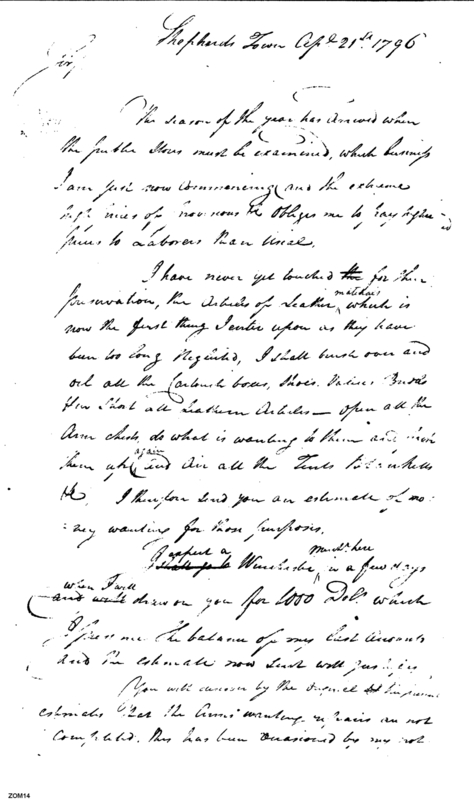 Shepherds Town Apl. 21st. 1796
Sir,
The season of the year has arrived when
the public Stores must be examined, which business
I am just now commencing and the extreme
high prices of provisions &c obliges me to pay higher
prices to Laborers than usual.
I have never yet touched the for their
preservation, the Articles of Leather matters which is
now the first thing I enter upon as they have
been too long neglected, I shall brush over and
oil all the Cartouch boxes, Shoes.
all Leathern Articles — open all the
Arm chests, do what is wanting to them and
them up again and air all the Tents Blankets
&c. I therefore send you an estimate of mo-
-ney wanting for those purposes.
I expect a Winchester here in a few days
when I will
and will draw on you for 1000 Dols. which
I presume the balance of my last Accounts
and the estimate now sent will justify,
You will by the
estimates that the Arms wanting repairs are not
completed. this has been occasioned by my not
ZOM14